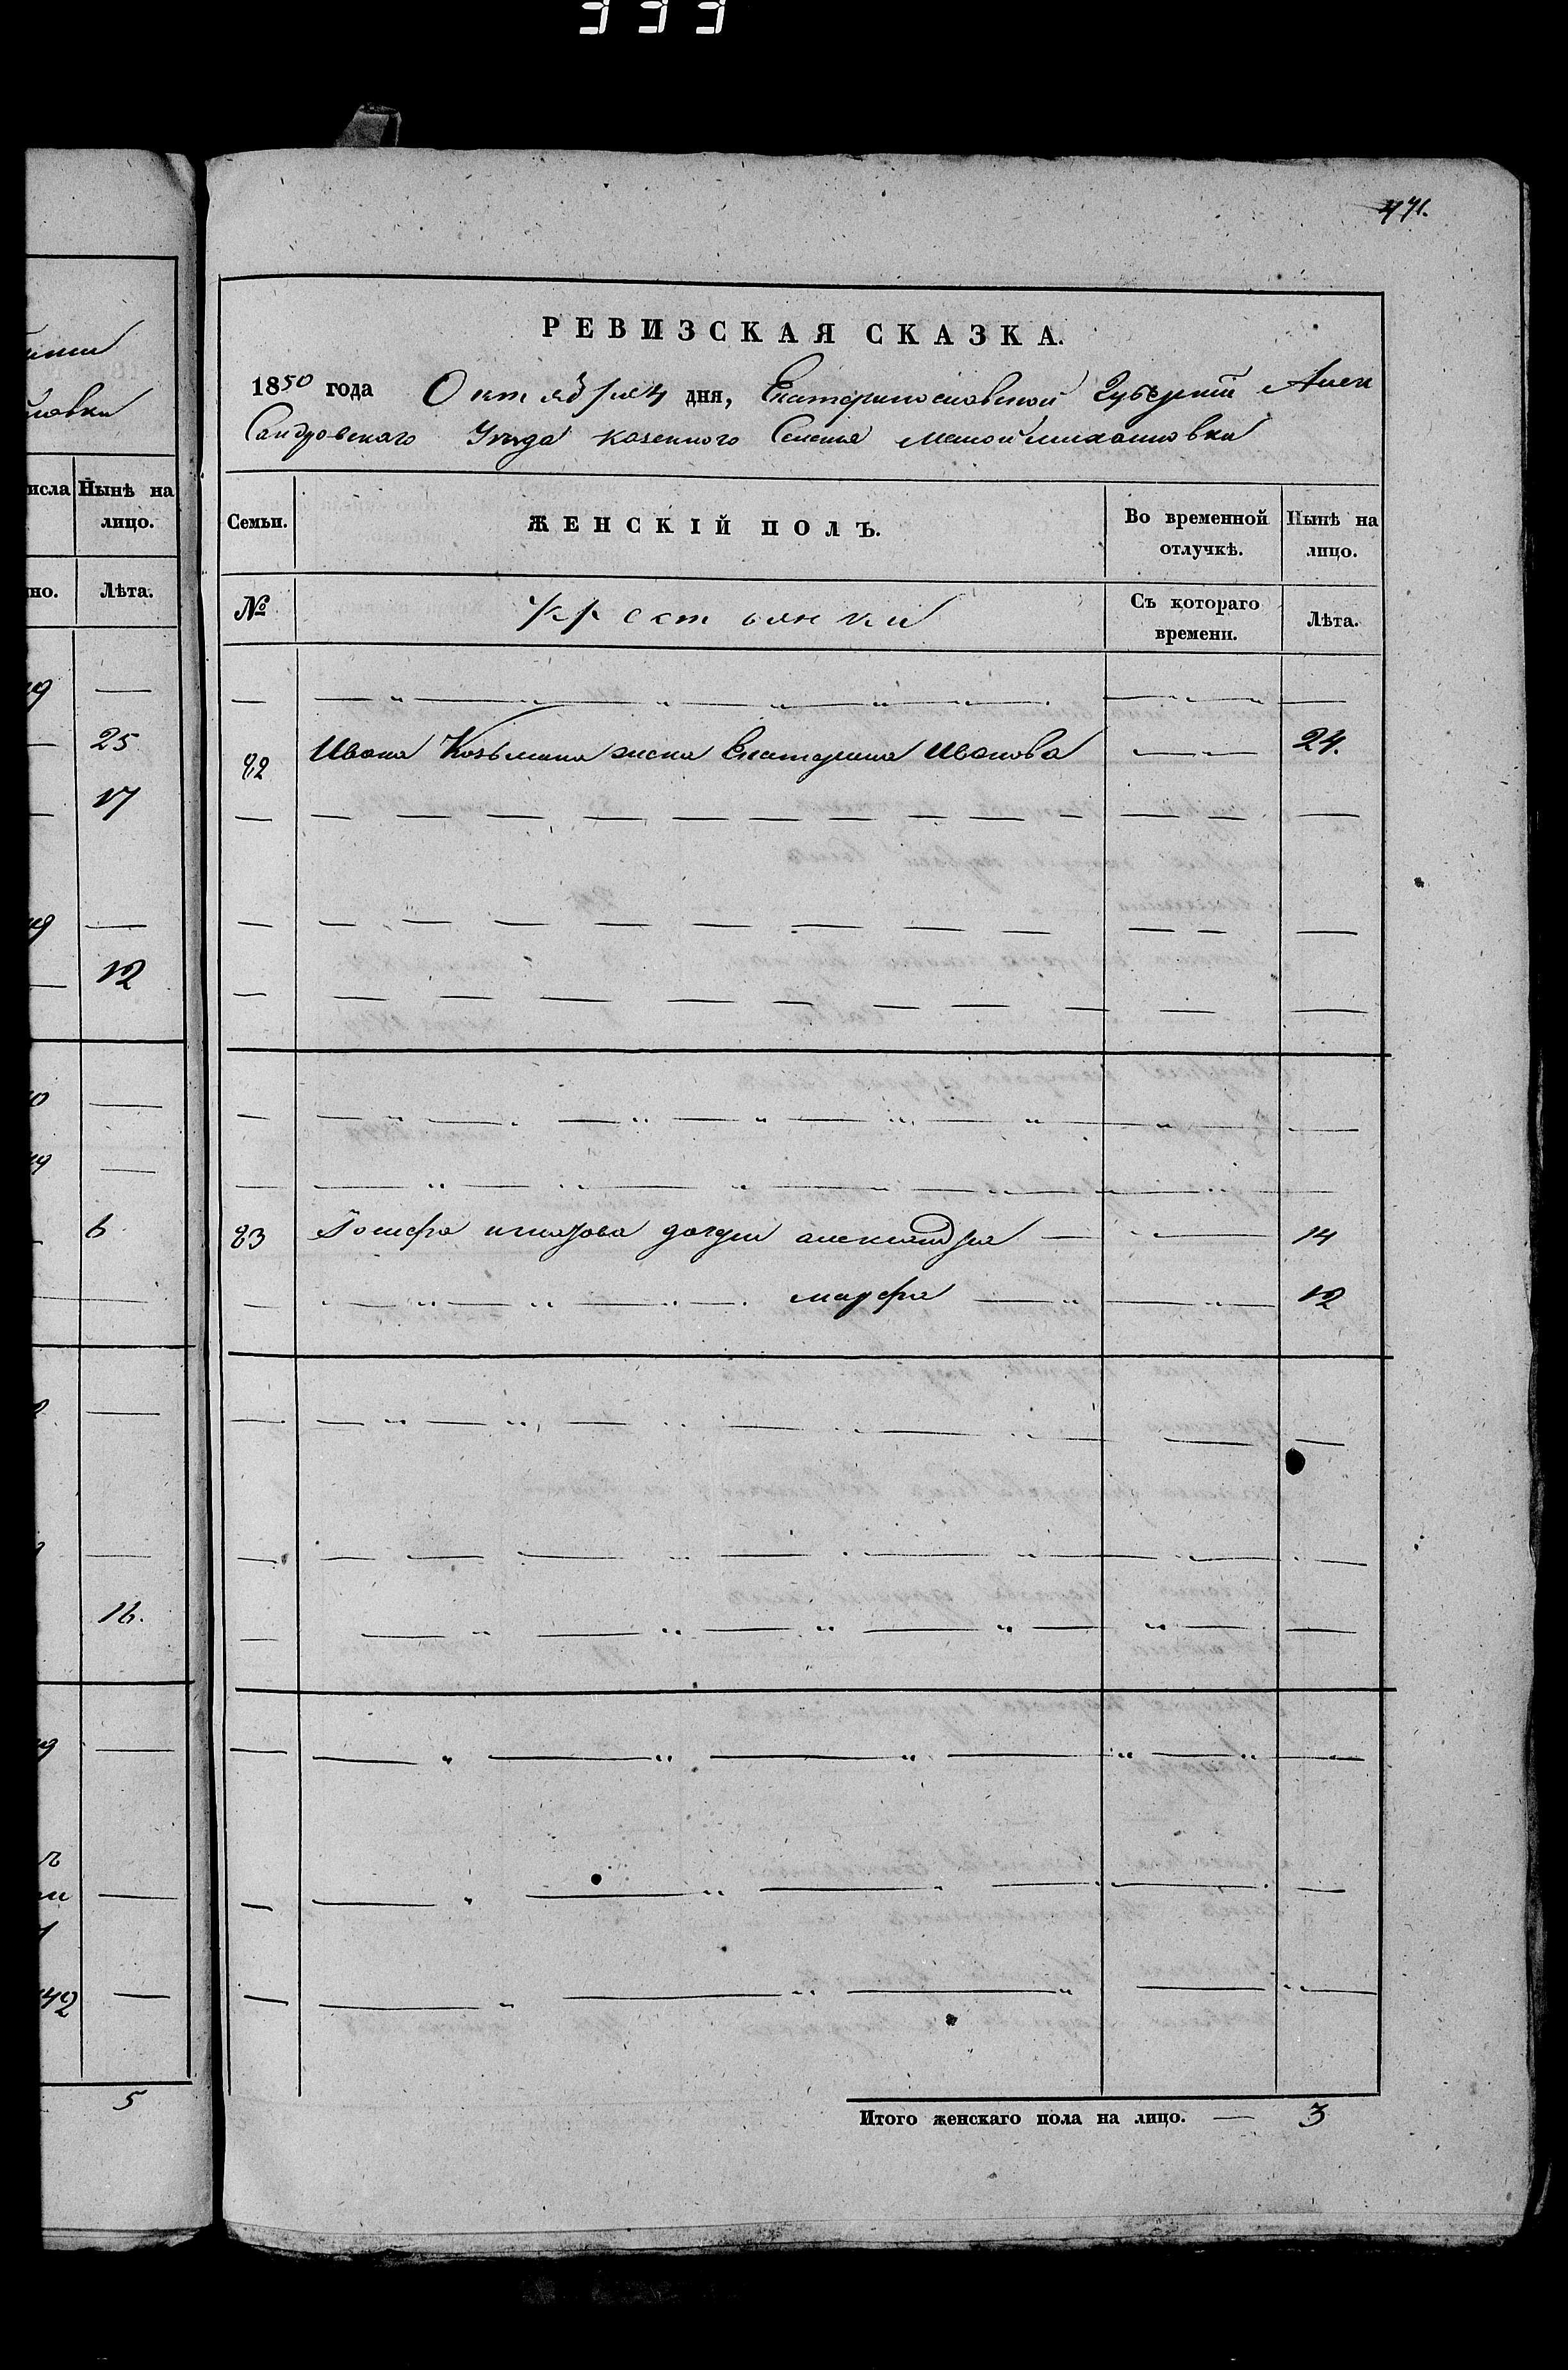 333
471.
РЕВИЗСКАЯ СКАЗКА.
1850 года Октября 4 дня, Екатеринославской Губернiи Алек
сандровскаго Уѣзда казенного Селенья малой михайловки
исла Нынѣ на лицо.
но. Лѣта.
Семьи. ЖЕНСКІЙ ПОЛЪ. Во временной отлучкѣ. Нынѣ на лицо.
№ Крестьянки Съ котораго времени. Лѣта.
82 Ивана Козьмина жена Екатерина Иванова — — 24.
83 Іосифа игнатова дочери александра — — 14
— марфа — — 12
25
17
12
6
16.
42
5
Итого женскаго пола на лицо. — 3